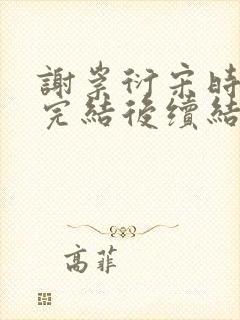 謝崇衍宋時
完結後續結
高菲